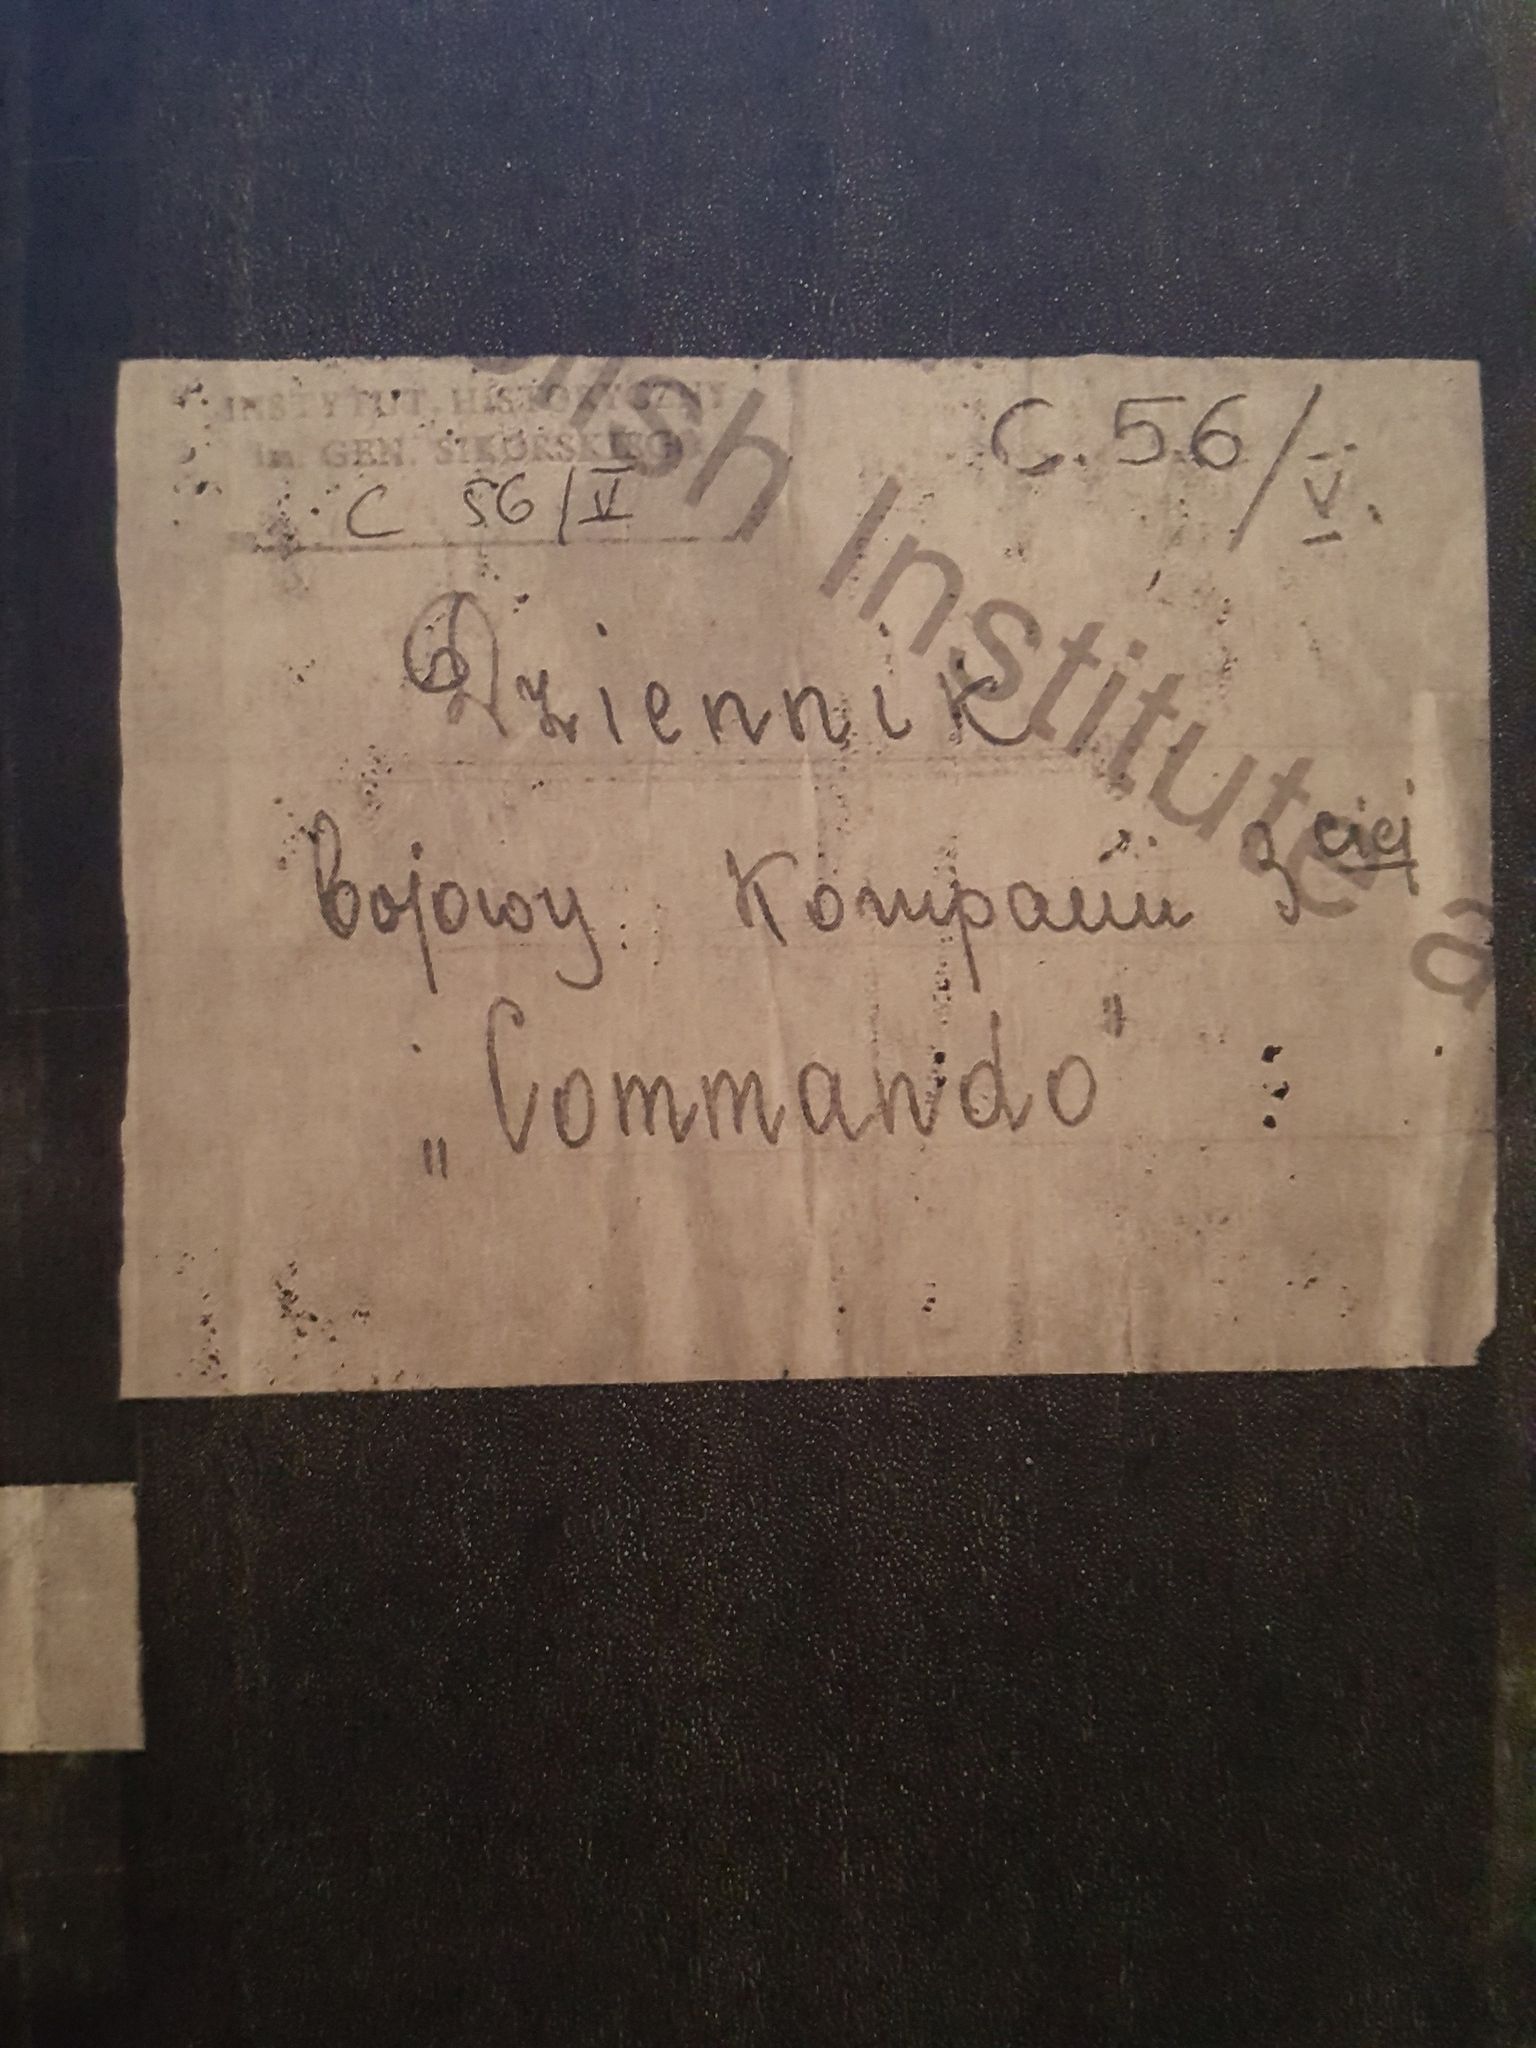 INSTYTUT HISTORYCZNY
im. GEN. SIKORSKIEGO
C 56/V
C. 56/V.
Dziennik
Bojowy Kompanii 3 ciej
„Commando"
ish Institute a